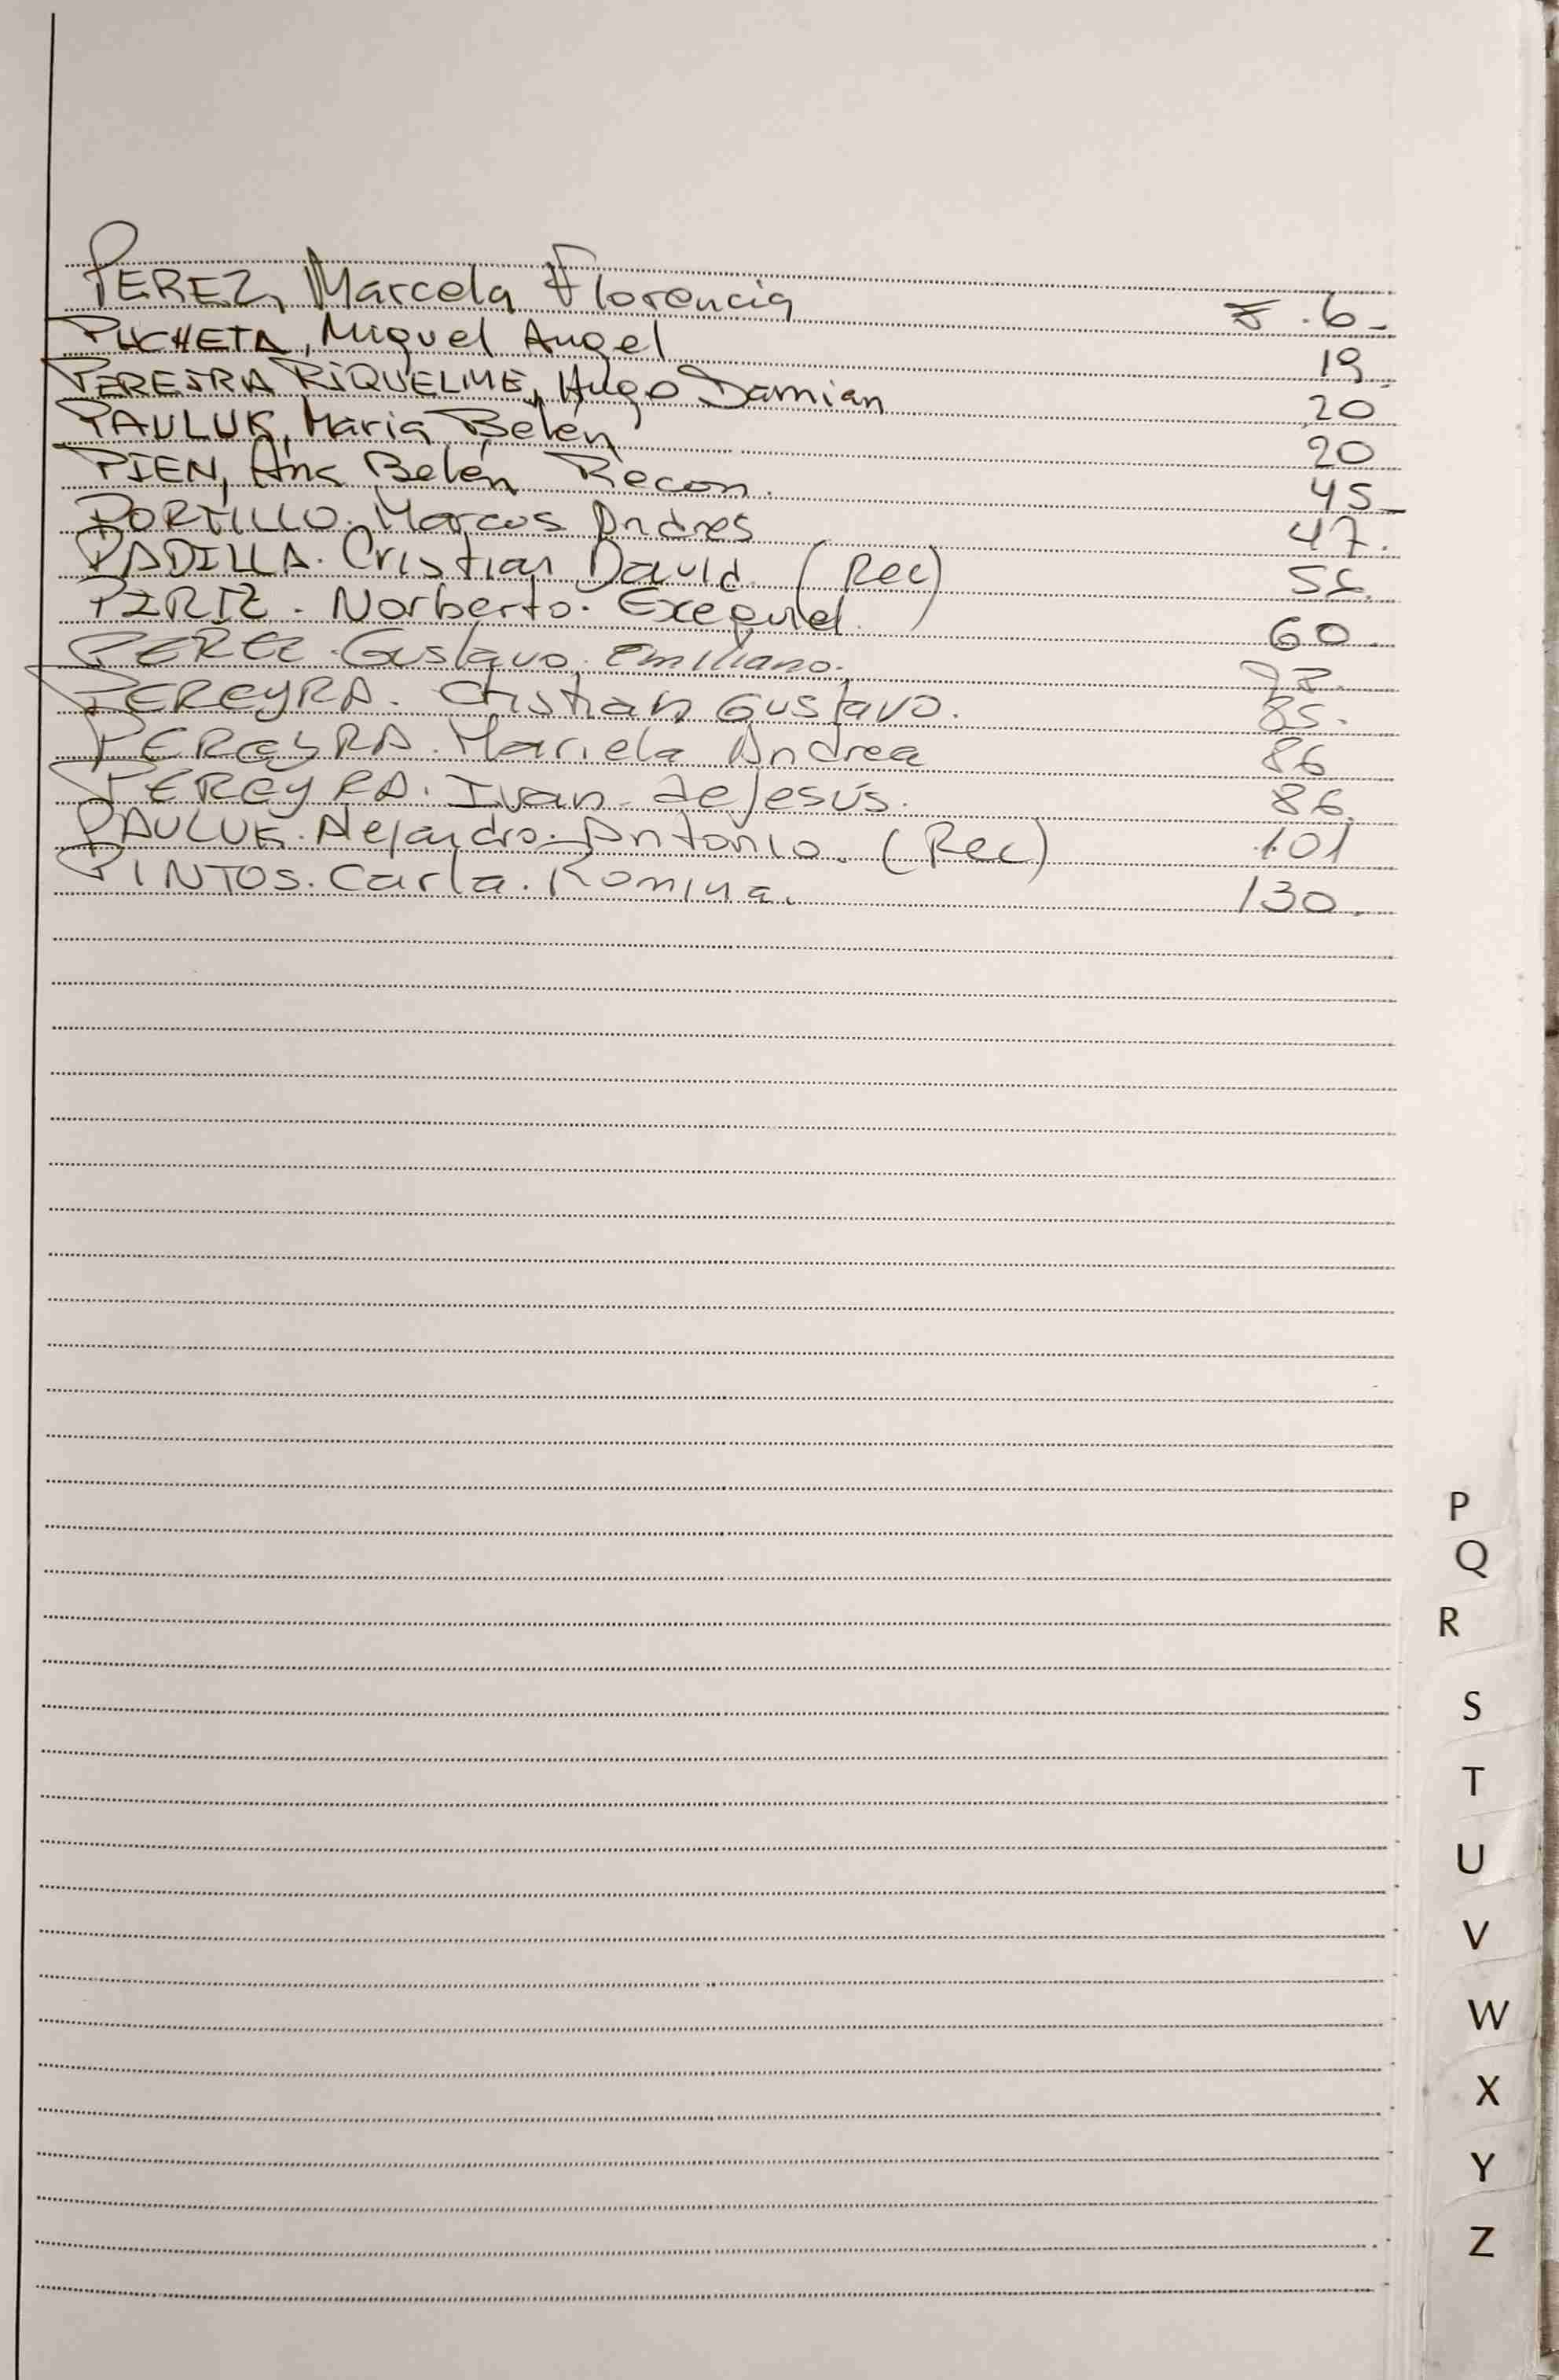 PEREZ, Marcela Florencia F. 6-
PUCHETA, Miguel Angel 19-
PEREIRA RIQUELME, Hugo Damian 20
PAULUK, Maria Belén 20
PIEN, Ana Belén Recon. 45-
PORTILLO. Marcos Andres 47.
PADILLA. Cristian David. (Rec)
PIRIZ. Norberto. Exequiel. 60.
PEREZ. Gustavo. Emiliano.
PEREYRA. Cristian Gustavo. 85.
PEREYRA. Mariela Andrea 86
PEREYRA. Ivan. de Jesús. 86.
PAULUK. Alejandro. Antonio. (Rec) 101
PINTOS. Carla. Romina. 130.
P
Q
R
S
T
U
V
W
X
Y
Z